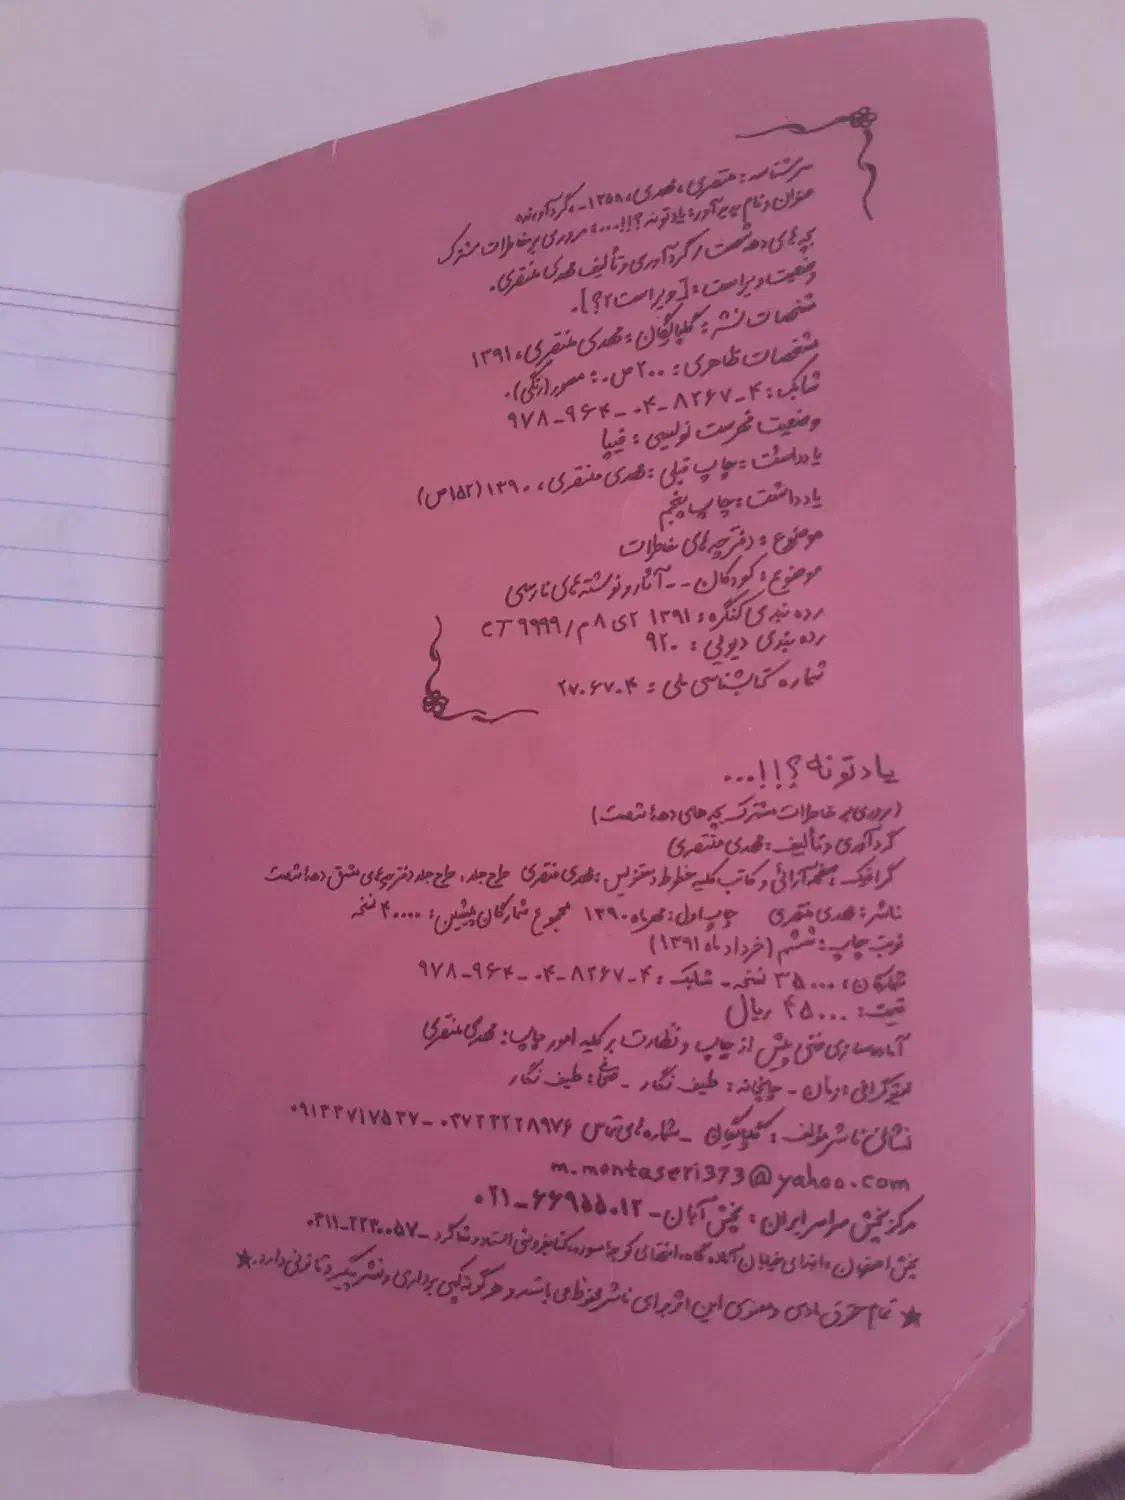 سرشناسه: منتصری، مهدی، ۱۳۵۸ـ، گردآورنده
عنوان و نام پدیدآور: یادتونه؟!!...: مروری بر خاطرات مشترک
بچه های دهه شصت / گردآوری و تألیف مهدی منتصری.
وضعیت ویراست: [ویراست ۲؟].
مشخصات نشر: گلپایگان: مهدی منتصری، ۱۳۹۱
مشخصات ظاهری: ۲۰۰ص.: مصور (رنگی).
شابک: ۴-۸۲۶۷-۰۴-۹۶۴-۹۷۸
وضعیت فهرست نویسی: فیپا
یادداشت: چاپ قبلی: مهدی منتصری، ۱۳۹۰ (۱۵۲ص)
یادداشت: چاپ پنجم
موضوع: دفترچه های خاطرات
موضوع: کودکان -- آثار و نوشته های فارسی
رده بندی کنگره: ۱۳۹۱ ۲ی ۸م/۹۹۹۹ CT
رده بندی دیویی: ۹۲۰
شماره کتابشناسی ملی: ۲۷۰۶۷۰۴
یادتونه؟!!...
(مروری بر خاطرات مشترک بچه های دههٔ شصت)
گردآوری و تألیف: مهدی منتصری
گرافیک، صفحه آرائی و کاتب کلیه خطوط دستنویس: مهدی منتصری طرح جلد: طرح جلد دفترچه های مشق دههٔ شصت
ناشر: مهدی منتصری چاپ اول: مهرماه ۱۳۹۰ مجموع شمارگان پیشین: ۴۰۰۰۰ نسخه
نوبت چاپ: ششم (خرداد ماه ۱۳۹۱)
شمارگان: ۳۵۰۰۰ نسخه - شابک: ۴-۸۲۶۷-۰۴-۹۶۴-۹۷۸
قیمت: ۴۵۰۰۰ ریال
آماده سازی فنی پیش از چاپ و نظارت بر کلیه امور چاپ: مهدی منتصری
لیتوگرافی: آرمان - چاپخانه: طیف نگار - صحافی: طیف نگار
نشانی ناشر مؤلف: گلپایگان - شماره های تماس ۰۳۷۲۳۲۲۸۹۷۶ - ۰۹۱۳۳۷۱۷۵۳۷
m.montaseri373@yahoo.com
مرکز پخش سراسر ایران: پخش آبان - ۶۶۹۵۵۰۱۲-۰۲۱
پخش اصفهان: ابتدای خیابان آمادگاه، انتهای کوچه سوره، کتابفروشی استاد و شاگرد - ۲۲۳۰۰۵۷-۰۳۱۱
★ تمام حقوق مادی و معنوی این اثر برای ناشر محفوظ می باشد و هر گونه کپی برداری و نشر پیگرد قانونی دارد.★